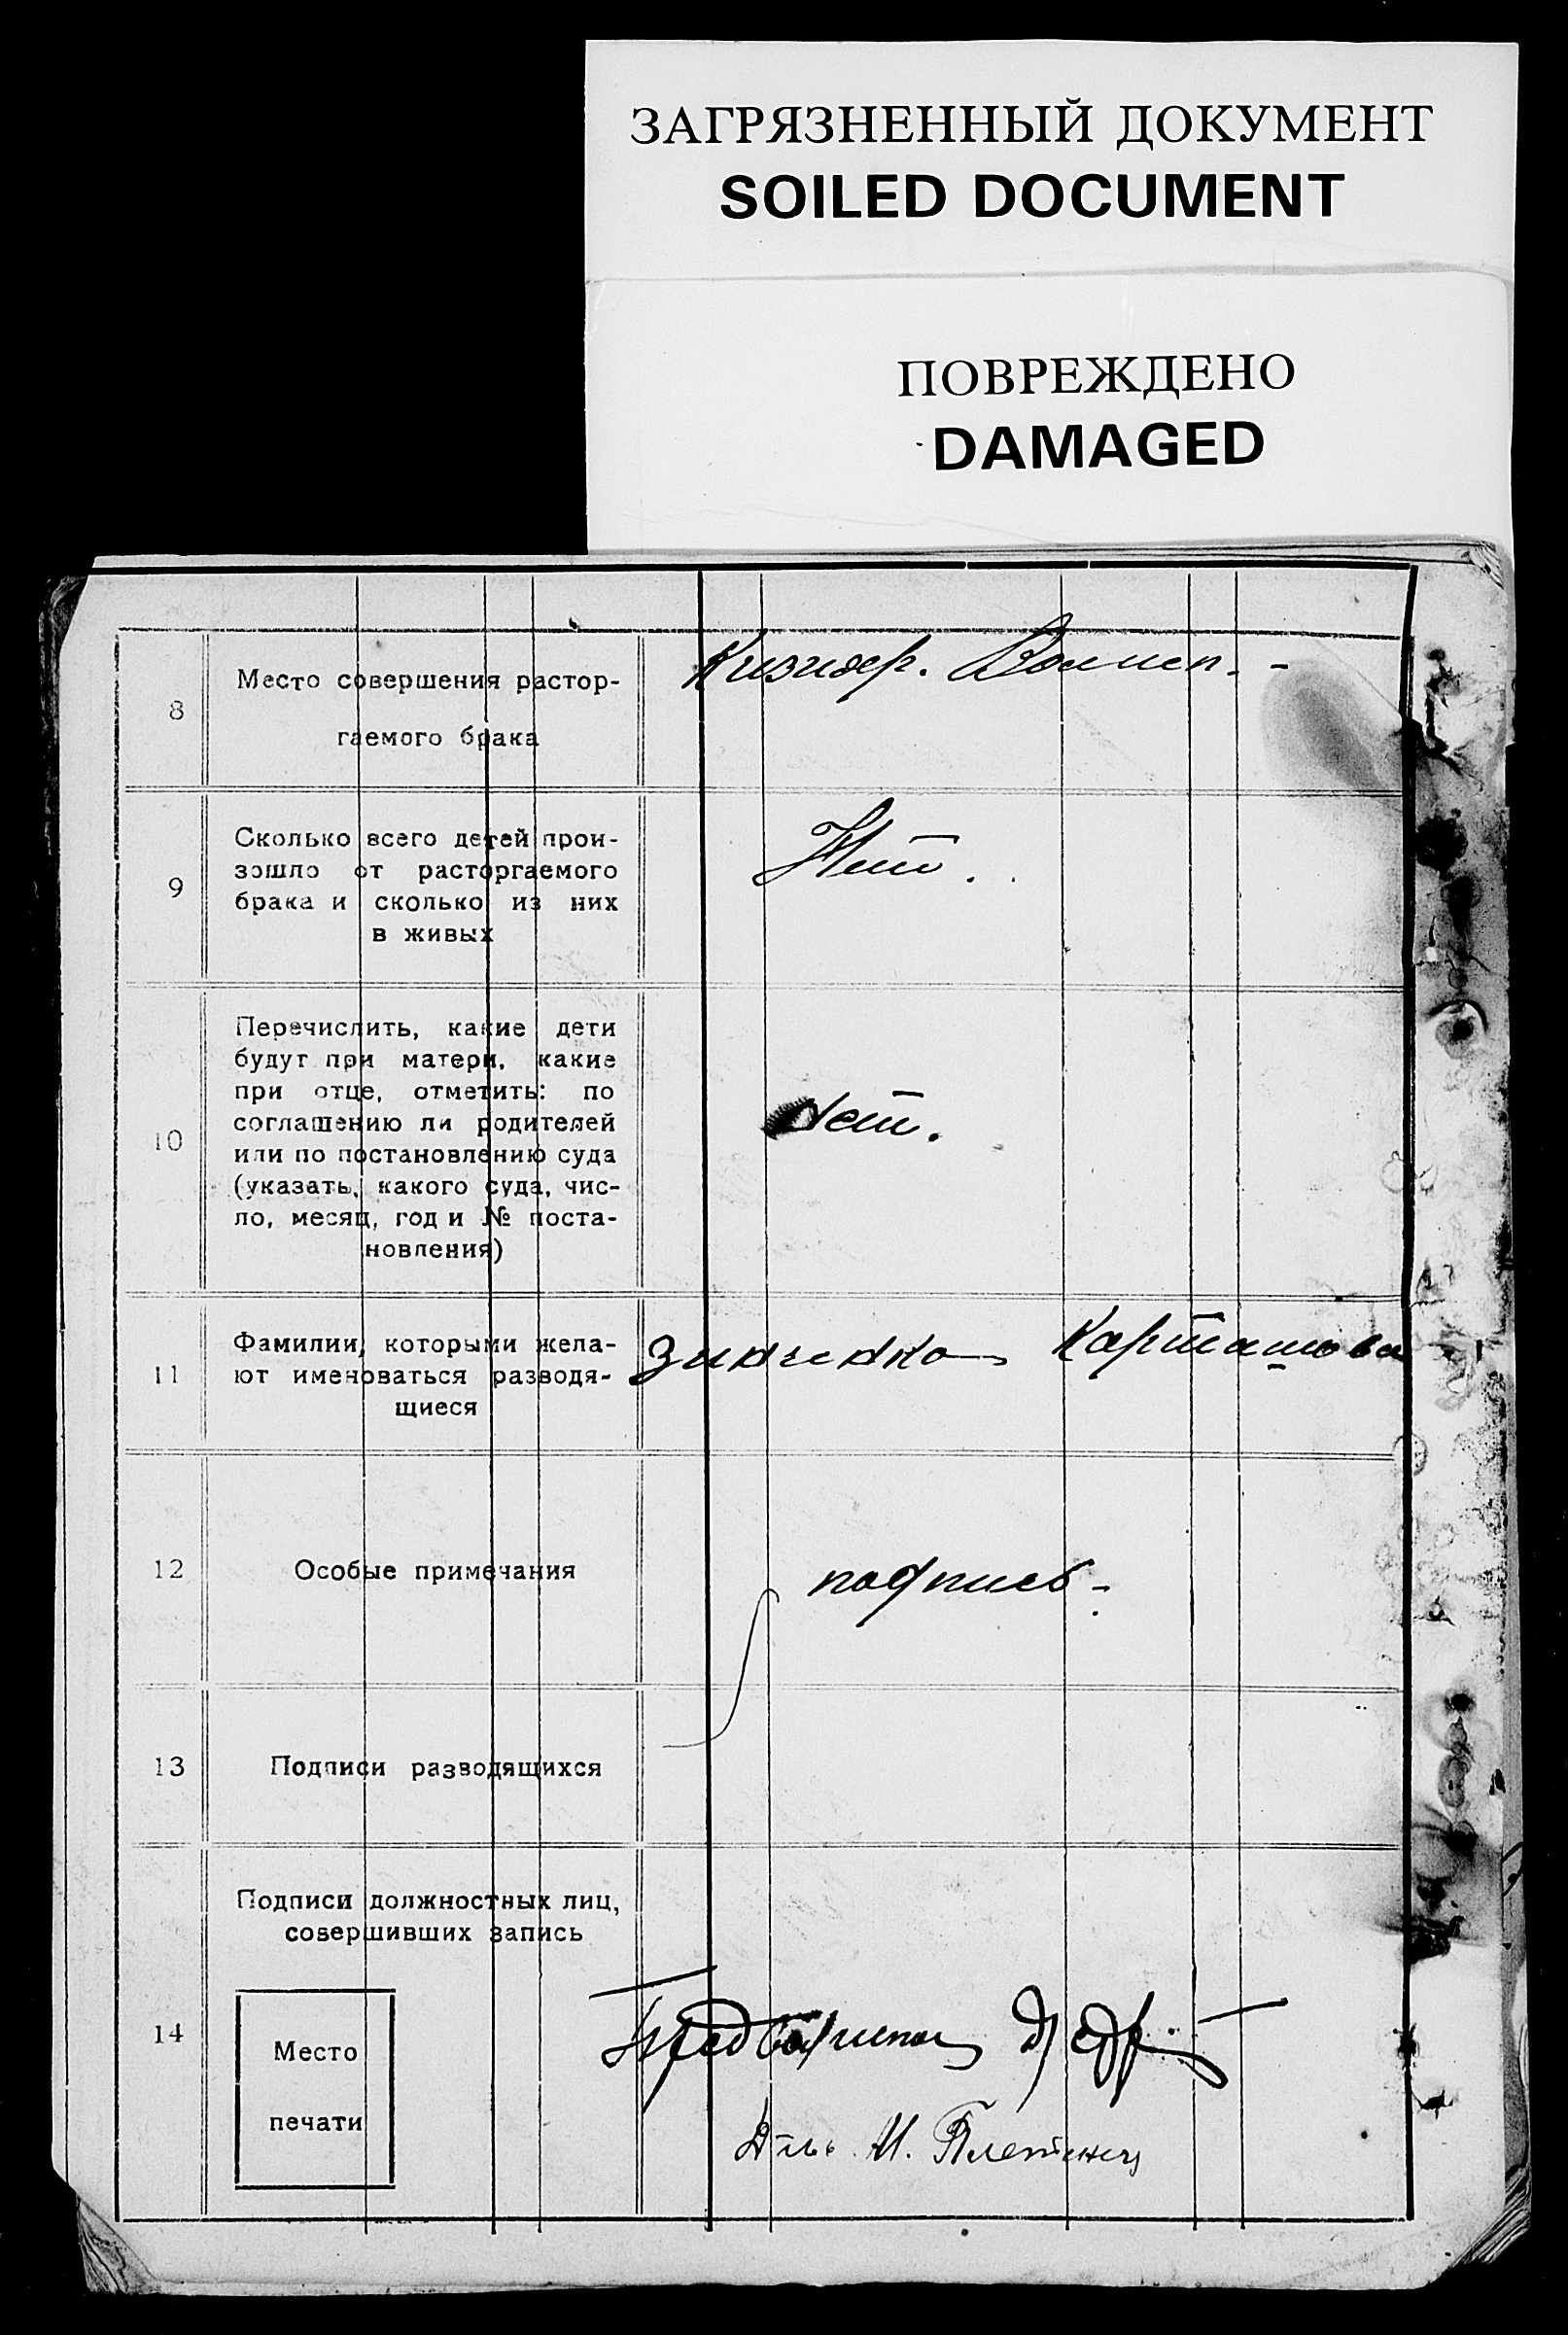 ЗАГРЯЗНЕННЫЙ ДОКУМЕНТ
SOILED DOCUMENT
ПОВРЕЖДЕНО
DAMAGED
8
Место совершения растор-
гаемого брака
9
Сколько всего детей прои-
зошло от расторгаемого
брака и сколько из них
в живых
Нет.
10
Перечислить, какие дети
будут при матери, какие
при отце, отметить: по
соглашению ли родителей
или по постановлению суда
(указать, какого суда, чис-
ло, месяц, год и № поста-
новления)
Нет.
11
Фамилии, которыми жела-
ют именоваться разводя-
щиеся
Зинченко Карташова
12
Особые примечания
подпись -
13
Подписи разводящихся
14
Подписи должностных лиц,
совершивших запись
Место
печати
И. Плетенец